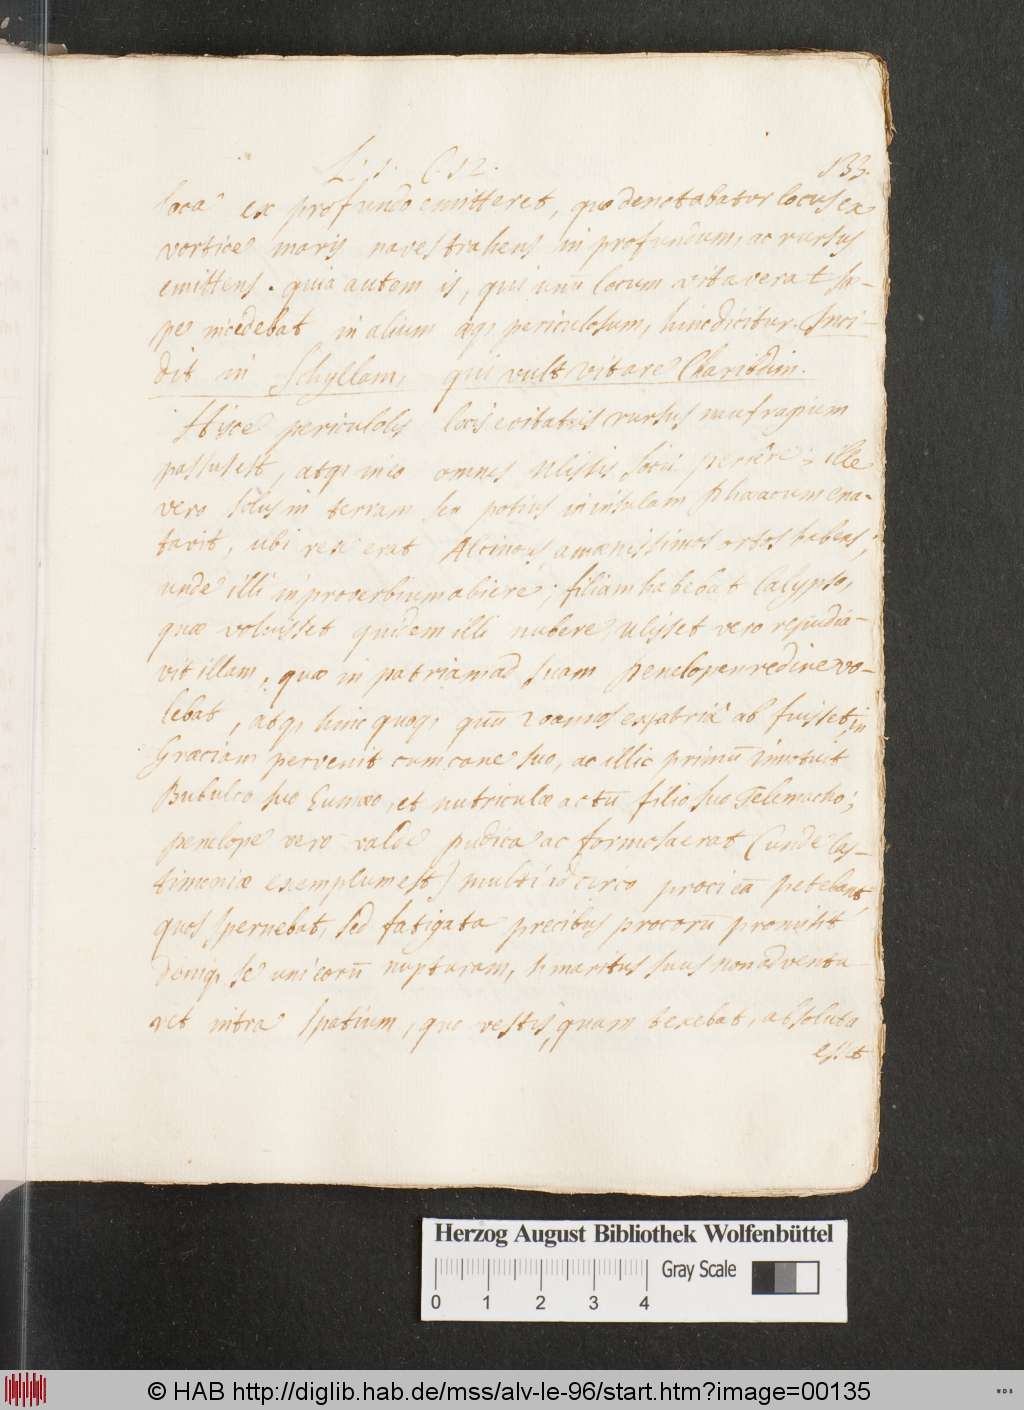 L: 1. C. 12. 133.
loca ex profundo emitteret, quo denotabatur locus ex
vortice maris naves trahens in profundum, ac rursus
emittens. quia autem is, qui unū locum vitaverat sæ-
pe incidebat in alium æq, periculosum, hinc dicitur. Inci-
dit in Schyllam, qui vult vitare Charibdim.
Hisce periculosis locis evitatis rursus naufragium
passus est, atq, in eo omnes Ulissis socii periêre; ille
vero solus in terram seu potius in insulam Phæacum ena-
tavit, ubi rex erat Alcinous, amænissimos ortos habens;
unde illi in proverbium abiere; filiam habebat Calypso,
quæ voluisset quidem illi nubere, Ulisset vero repudia-
vit illam, quæ in patriam ad suam penelopen redire vo-
lebat, atq, hinc quoq, quū 20 annos ex patriâ ab fuisset, in
Græciam pervenit cum cane suo, ac illic primū innotuit
Bubulco suo Eumæo, et nutriculæ ac tū filio suo Telemacho;
penelope vero valde pudica ac formosa erat (unde cas-
timoniæ exemplum est) multi idcirco proci eā petebant,
quos spernebat, sed fatigata precibus procorū promisit
deniq, se uni eorū nupturam, si maritus suus non adventa
ret intra spatium, quo vestis, quam texebat, absoluta
esset
Herzog August Bibliothek Wolfenbüttel
Gray Scale
0 1 2 3 4
© HAB http://diglib.hab.de/mss/alv-le-96/start.htm?image=00135